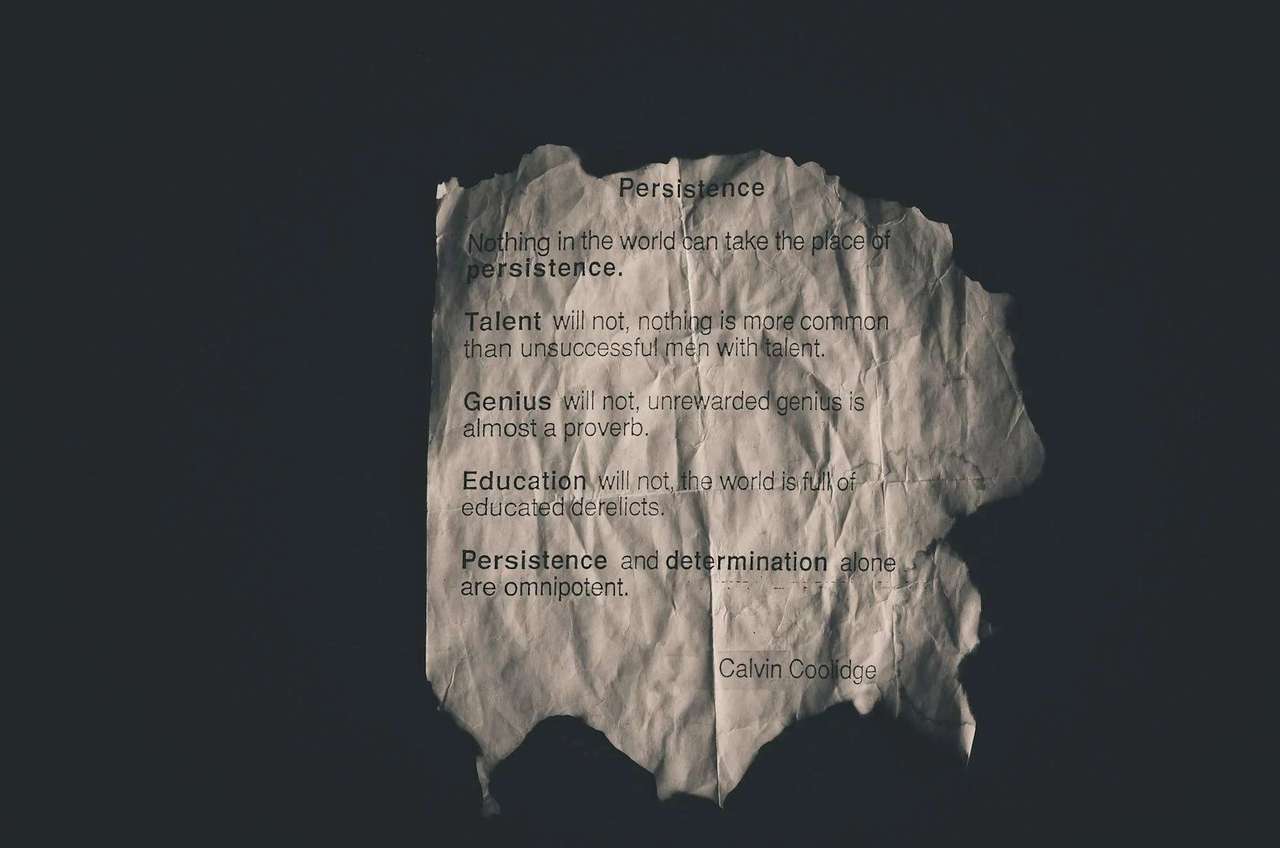 Persistence
Nothing in the world can take the place of
persistence.
Talent will not, nothing is more common
than unsuccessful men with talent.
Genius will not, unrewarded genius is
almost a proverb.
Education will not, the world is full of
educated derelicts.
Persistence and determination alone
are omnipotent.
Calvin Coolidge